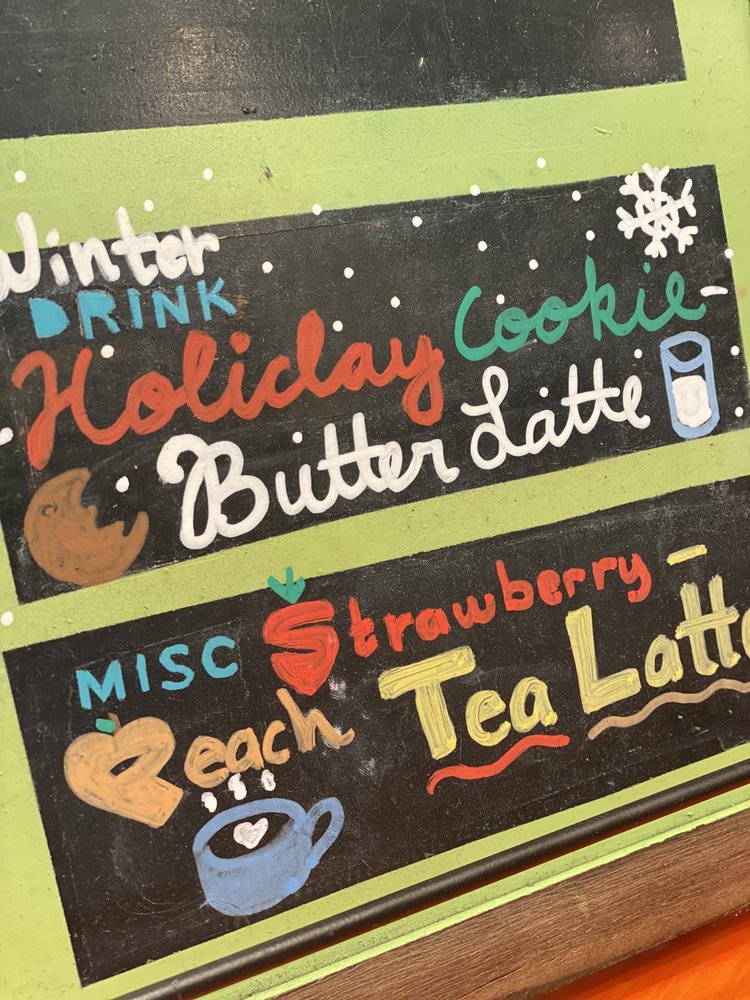 Winter
DRINK
Holiday Cookie
Butter Latte
MISC Strawberry -
Peach Tea Latte